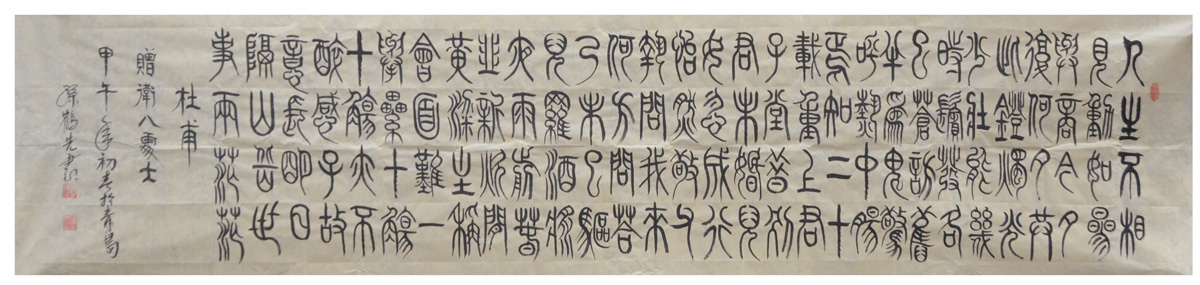 人生不相
見動如參
與商今夕
復何夕共
此燈燭光
少壯能幾
時鬢髮各
已蒼訪舊
半為鬼驚
呼熱中腸
焉知二十
載重上君
子堂昔別
君未婚兒
女忽成行
怡然敬父
執問我來
何方問答
乃未已驅
兒羅酒漿
夜雨剪春
韭新炊間
黃粱主稱
會面難一
舉累十觴
十觴亦不
醉感子故
意長明日
隔山岳世
事兩茫茫
杜甫
贈衛八處士
甲午年初春於青島